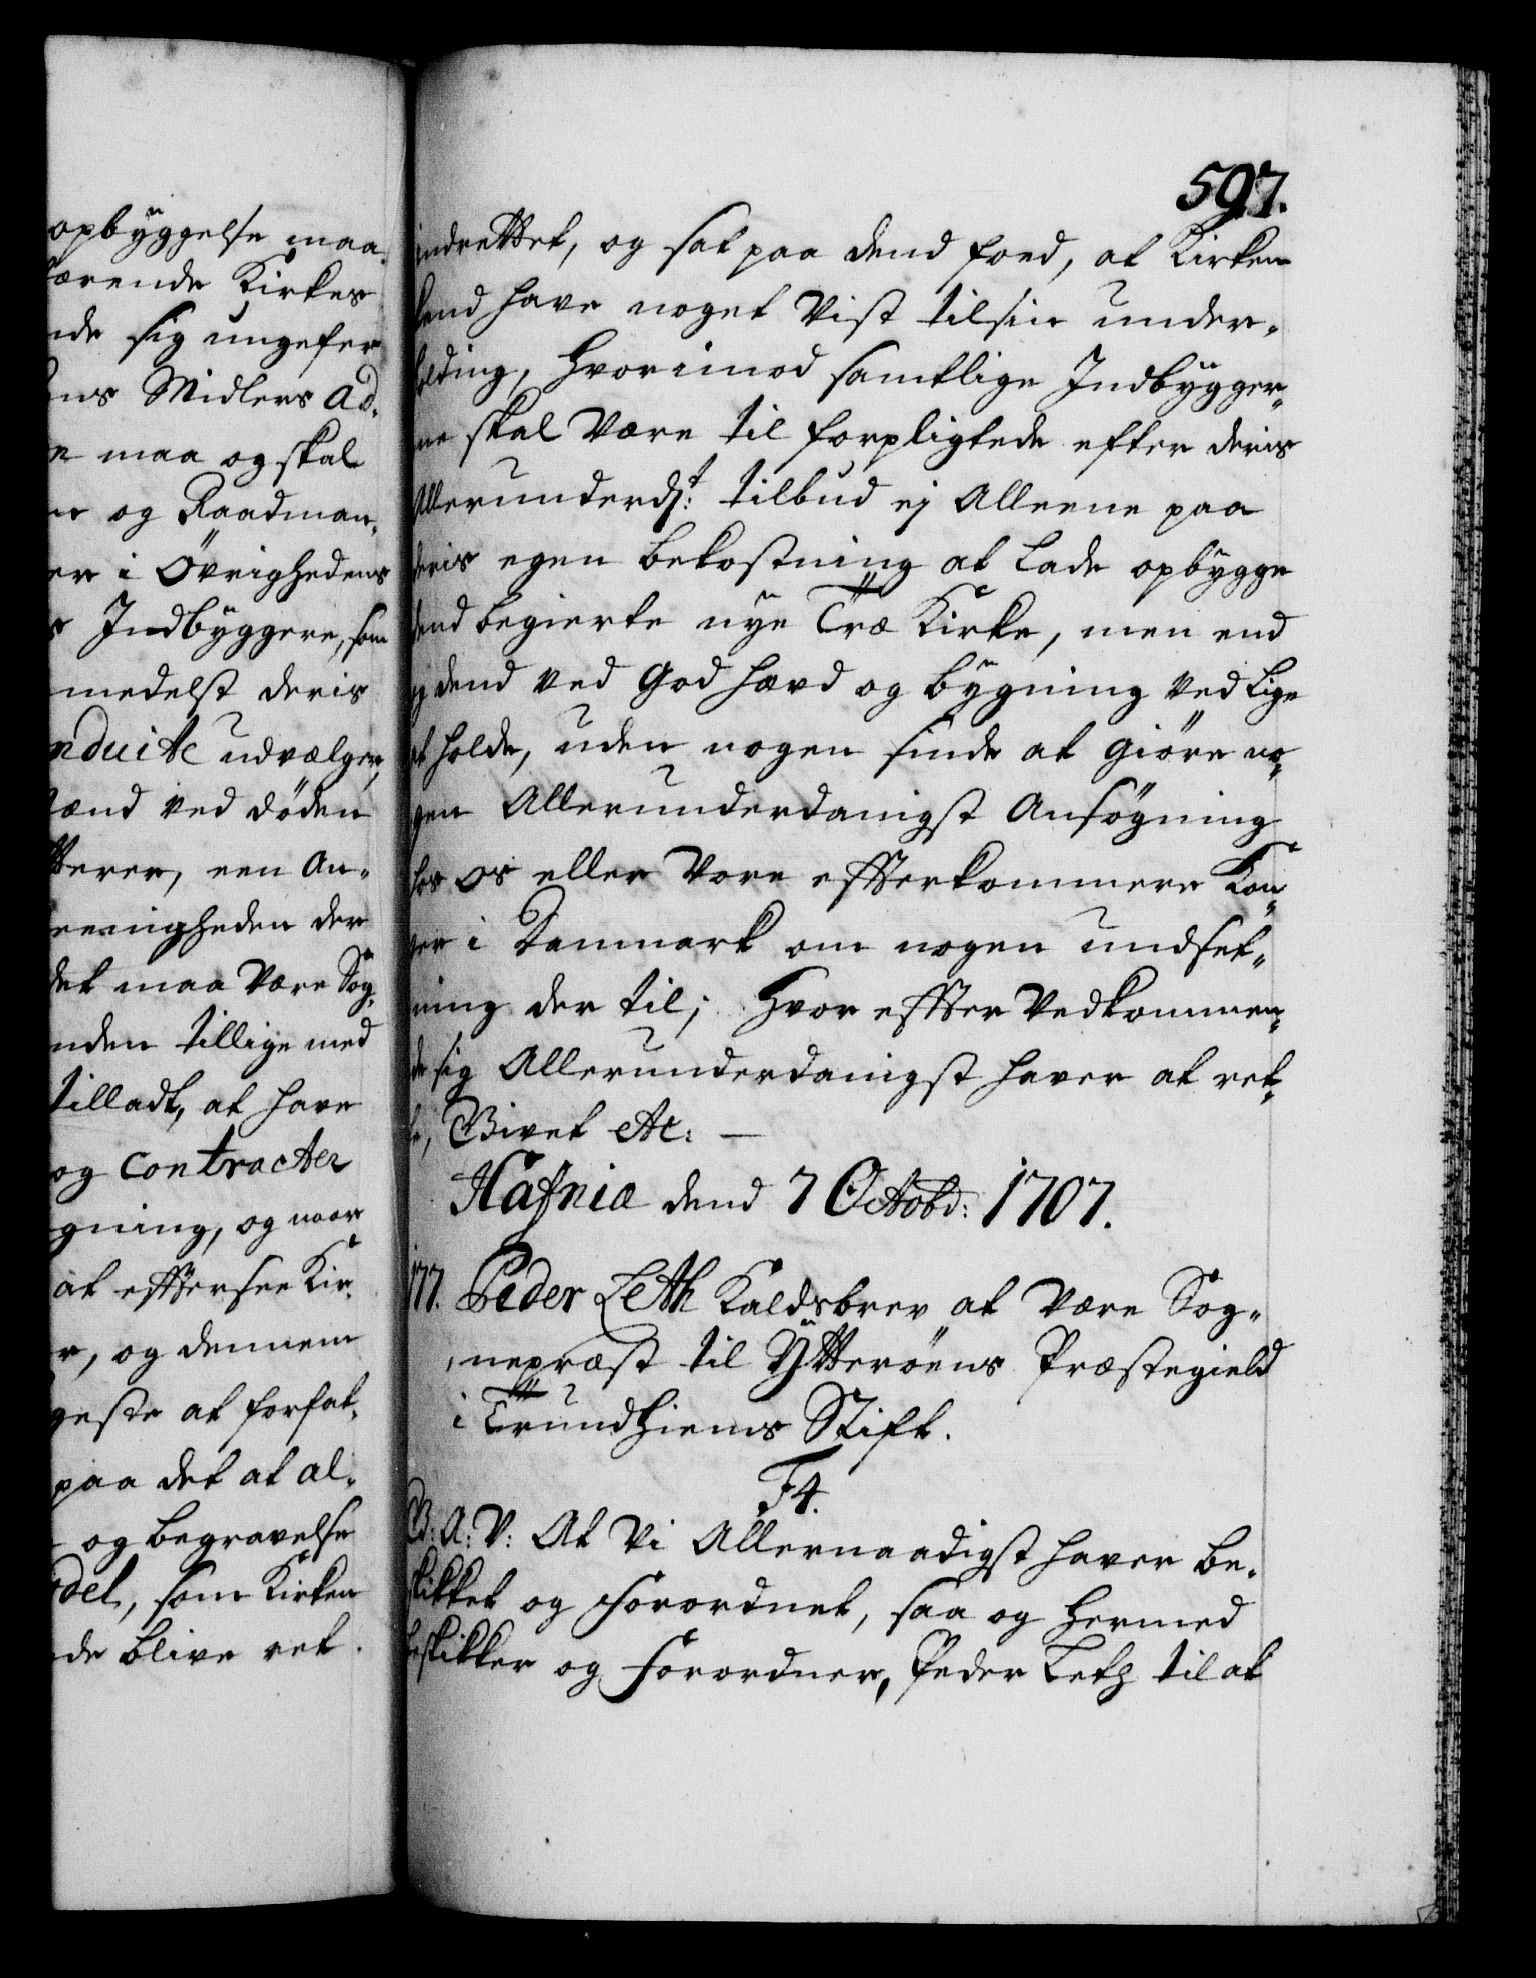 opbyggelse maa
ærende Kirkes
nde sig ungefer
ns Midlers ad-
e maa og skal
er og Raadman-
er i Øvrighedens
s Indbyggere, som
medelst deris
nduite udvælger,
ænd ved døden
terer, een An-
eenigheden der
det maa være Sog-
nden tillige med
tilladt, at have
og Contracter
gning, og naar
at effterse Kir-
r, og dennem
geste at forfat-
paa det at al-
og begravelse
del, som Kirken
de blive ret
597.
indrettet, og sat paa dend foed, at Kirken
kand have noget Vist til sin under-
holding, Hvorimod samtlige Indbygger-
ne skal Være til forpligtede efter deris
Allerunderd:st tilbud ej Alleene paa
deris egen bekostning at lade opbygge
dend begierte nye Træ Kirke, men end
og dend ved God hævd og bygning ved Lige
at holde, uden nogen sinde at Giøre no-
gen Allerunderdanigst Ansøgning
hos os eller Vore effterkommere Kon-
ger i Danmark om nogen undset-
ning der til; Hvor effter Vedkommen-
de sig Allerunderdanigst haver at ret-
te, Givet etc: —
Hafniæ dend 7 Octobr: 1707.
177. Peder Leth Kaldsbrev at være Sog-
nepræst til Ytterøens Præstegield
i Trundhiems Stift.
F4.
G: A: V: At Vi Allernaadigst haver be-
skikket og forordnet, saa og hermed
beskikker og forordner, Peder Leth til at